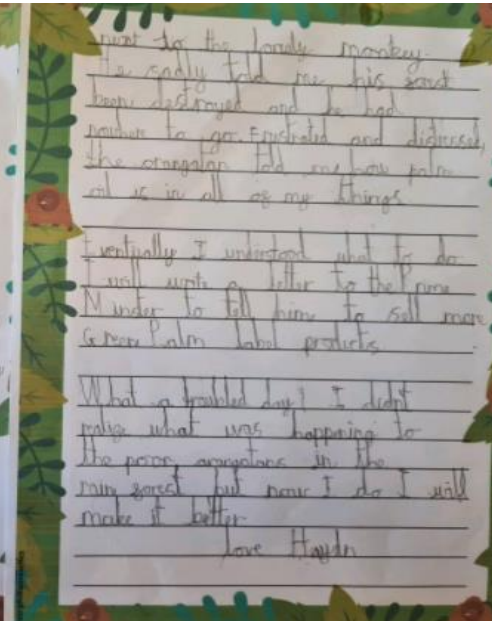 next to the lonely monkey.
He sadly told me his forest
been destroyed and he had
nowhere to go. Frustrated and distressed,
the orangatan told me how palm
oil is in all of my things
Eventually I understood what to do
I will write a letter to the Prime
Minster to tell him to sell more
Green Palm label products
What a troubled day! I didn't
realise what was happening to
the poor orangatans in the
rain forest but now I do I will
make it better
love Haydn